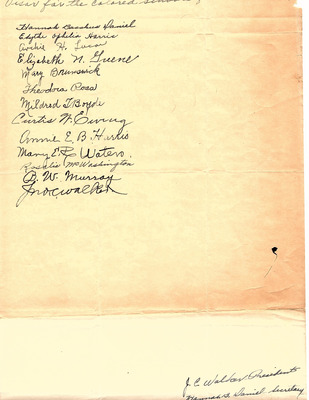 visor for the Colored Schools
Hannah Bacchus Daniel
Edythe Ophelia Harris
Archie H. Lucas
Elizabeth N. Greene
Mary Brunswick
Theodora Ross
Mildred T. Boyde
Curtis W. Ewing
Annie E. B. Harris
Mary E. Waters.
Rosalie M. Washington
B. W. Murray
Jno. C. Walker
J. C. Walker President
Hannah B. Daniel Secretary